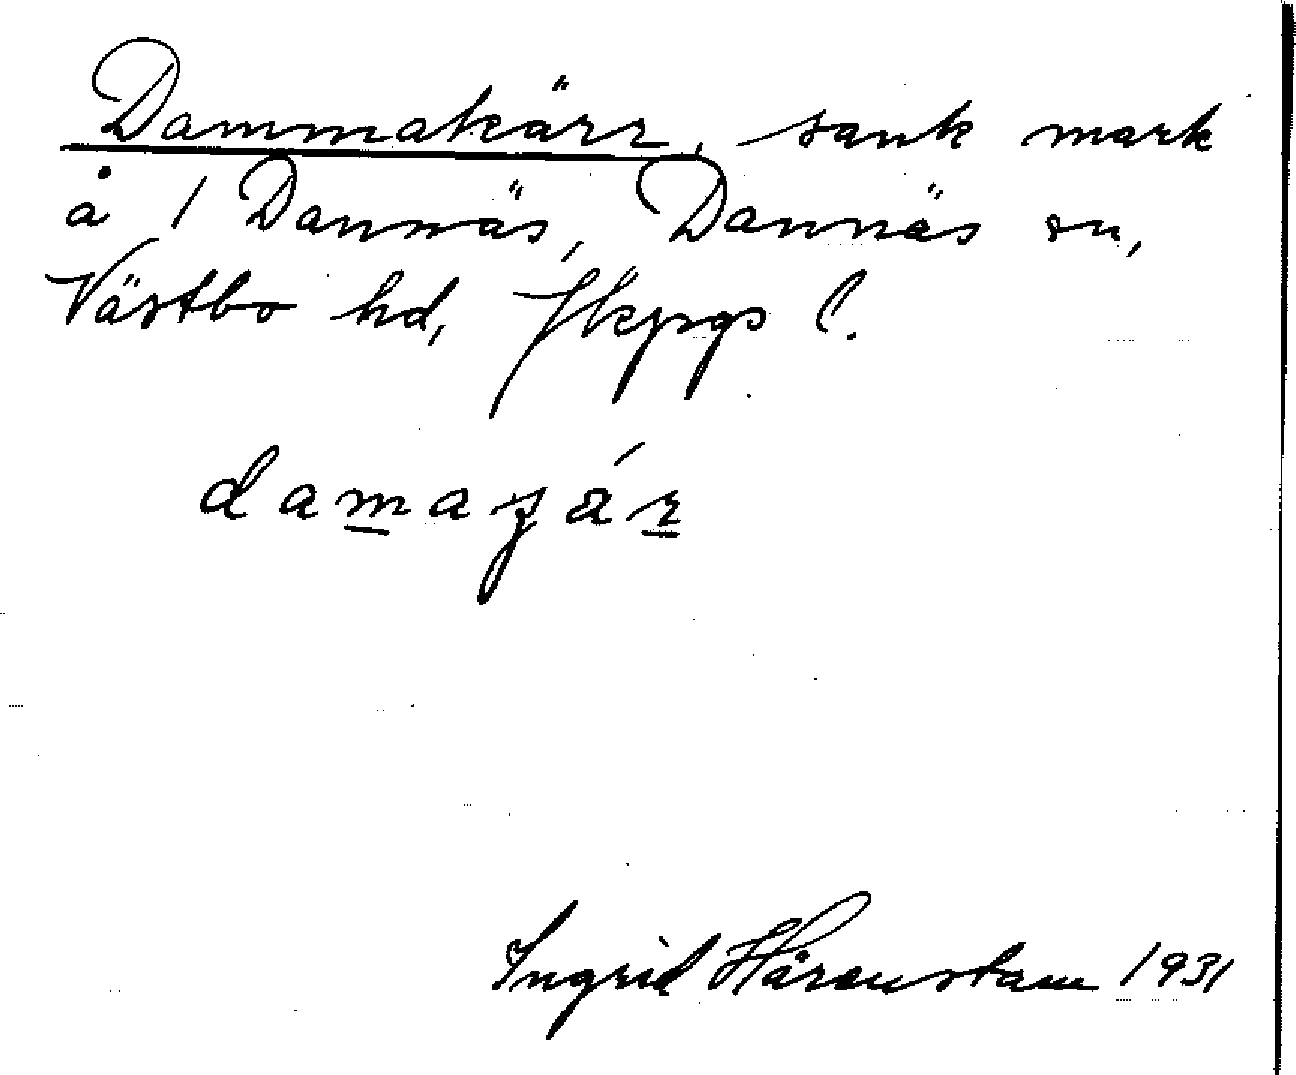 Dammakärr, sank mark
å 1 Dannäs, Dannäs sn,
Västbo hd, Jkpgs l.
Ingrid Hårenstam 1931